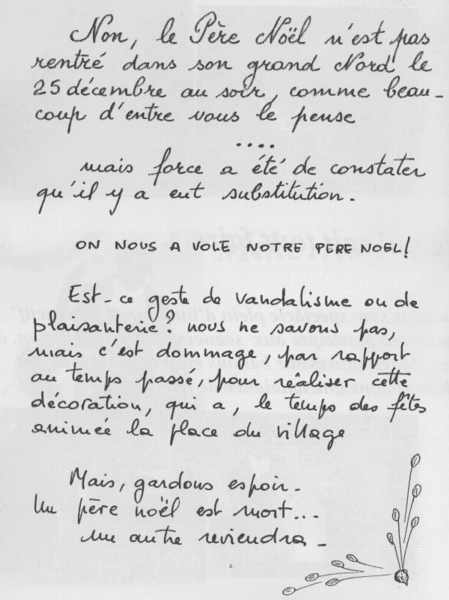 Non, le Père Noël n'est pas
rentré dans son grand Nord le
25 décembre au soir, comme beau-
coup d'entre vous le pense
....
mais force a été de constater
qu'il y a eut substitution.
ON NOUS A VOLE NOTRE PERE NOEL!
Est-ce geste de vandalisme ou de
plaisanterie: nous ne savons pas,
mais c'est dommage, par rapport
au temps passé, pour réaliser cette
décoration, qui a, le temps des fêtes
animée la place du village
Mais, gardons espoir-
Un père noël est mort...
un autre reviendra-